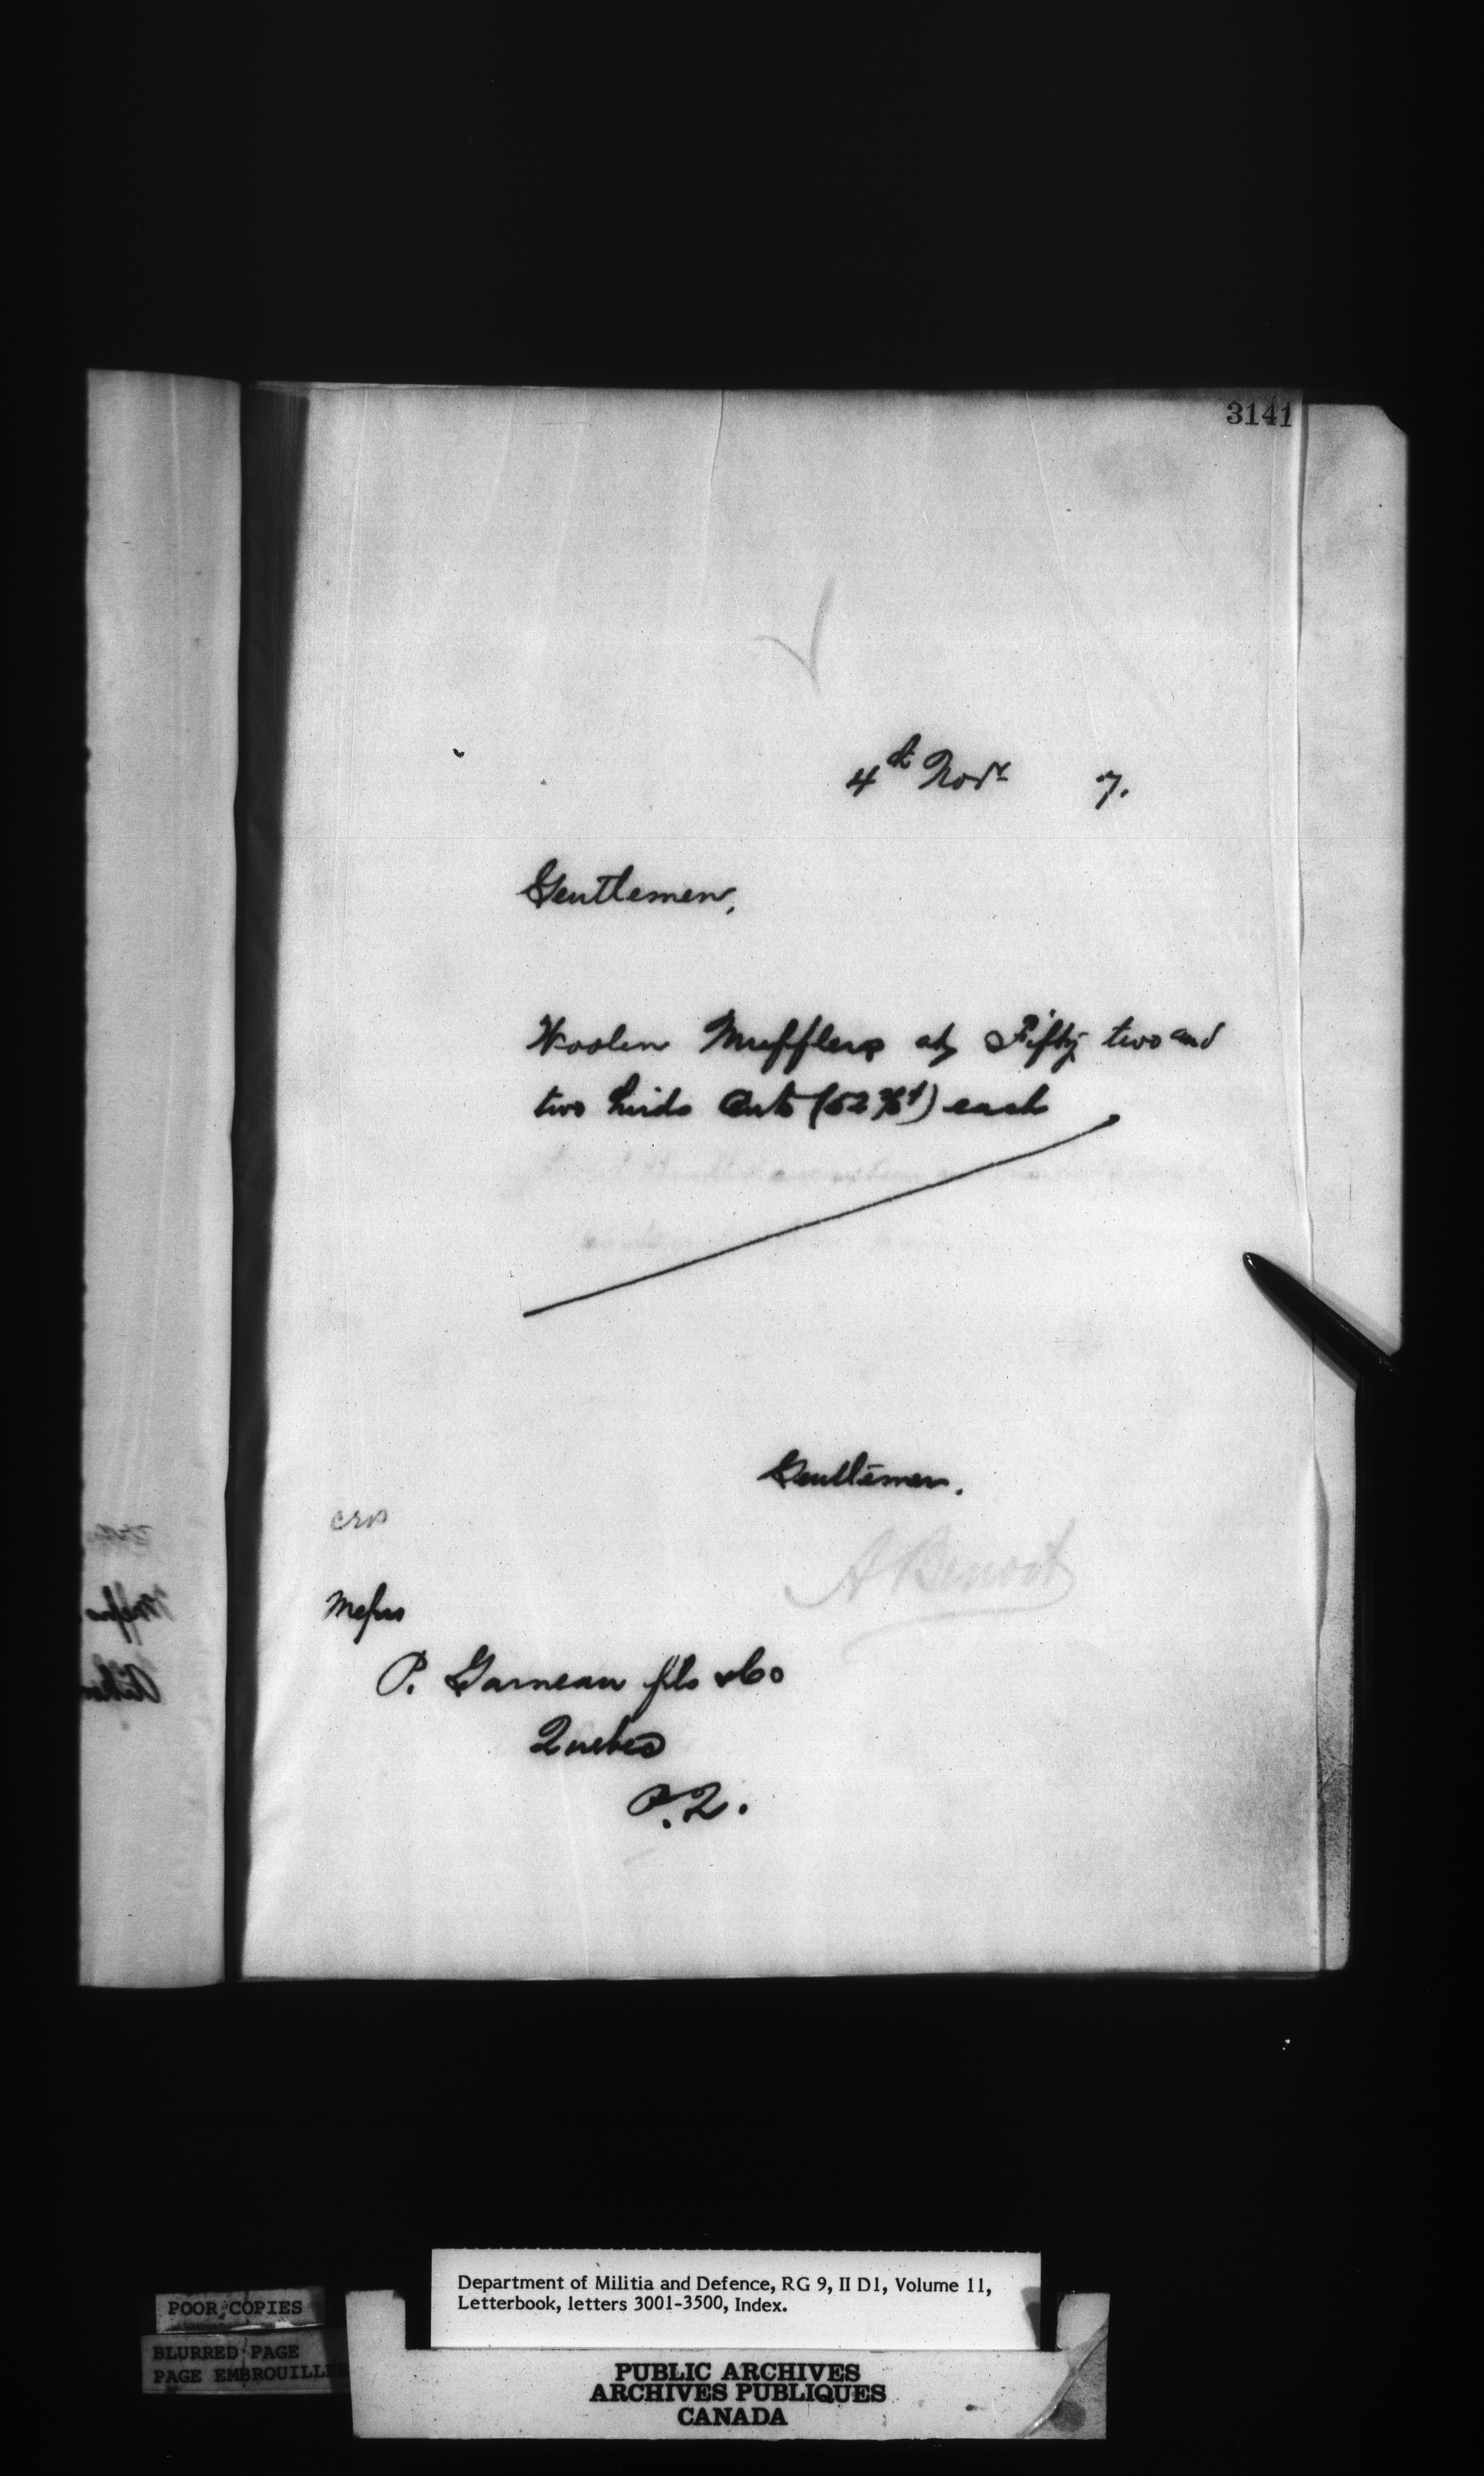 3141
4th Novr 7.
Gentlemen,
Woolen Mufflers at Fifty two and
two hirds Cents (52 2/3 ¢) each
Gentlemen.
A Benoit
Messrs
P. Garneau fils & Co
Quebec
P.Q.
POOR COPIES
BLURRED PAGE
PAGE EMBROUILLEE
Department of Militia and Defence, RG 9, II D1, Volume 11,
Letterbook, letters 3001-3500, Index.
PUBLIC ARCHIVES
ARCHIVES PUBLIQUES
CANADA